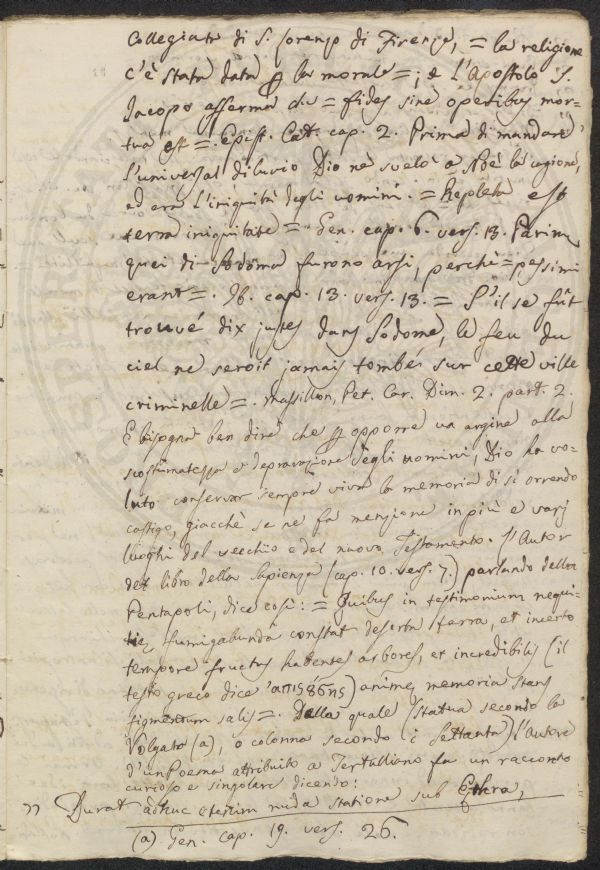 Collegiata di S. Lorenzo di Firenze, = la religione
c'è stata data per la morale =; e l'Apostolo S.
Jacopo afferma che = fides sine operibus mor-
tua est =. Epist. Cat. cap. 2. Prima di mandare
l'universal diluvio Dio ne svelò a Noè la cagione,
ed era l'iniquità degli uomini. = Repleta est
terra iniquitate = Gen. cap. 6. vers. 13. Parim.
quei di Sodoma furono arsi, perchè = pessimi
erant =. Ib. cap. 13. vers. 13. = S'il se fût
trouvé dix justes dans Sodome, le feu du
ciel ne seroit jamais tombé sur cette ville
criminelle =. Massillon, Pet. Car. Dim. 2. part. 2.
E bisogna ben dire che per opporre un argine alla
scostumatezza e depravazione degli uomini, Dio ha vo-
luto conservar sempre viva la memoria di sì orrendo
castigo, giacchè se ne fa menzione in più e varj
luoghi del vecchio e del nuovo Testamento. L'Autor
del libro della Sapienza (cap. 10. vers. 7.) parlando della
Pentapoli, dice così: = Quibus in testimonium nequi-
tiæ fumigabunda constat deserta terra, et incerto
tempore fructus habentes arbores, et incredibilis (il
testo greco dice ) animæ memoria stans
figmentum salis =. Della quale (statua secondo la
Volgata (a), o colonna secondo i Settanta) l'Autore
d'un Poema attribuito a Tertulliano fa un racconto
curioso e singolare dicendo:
" Durat adhuc etenim nuda statione sub Ethra,
(a) Gen. cap. 19. vers. 26.